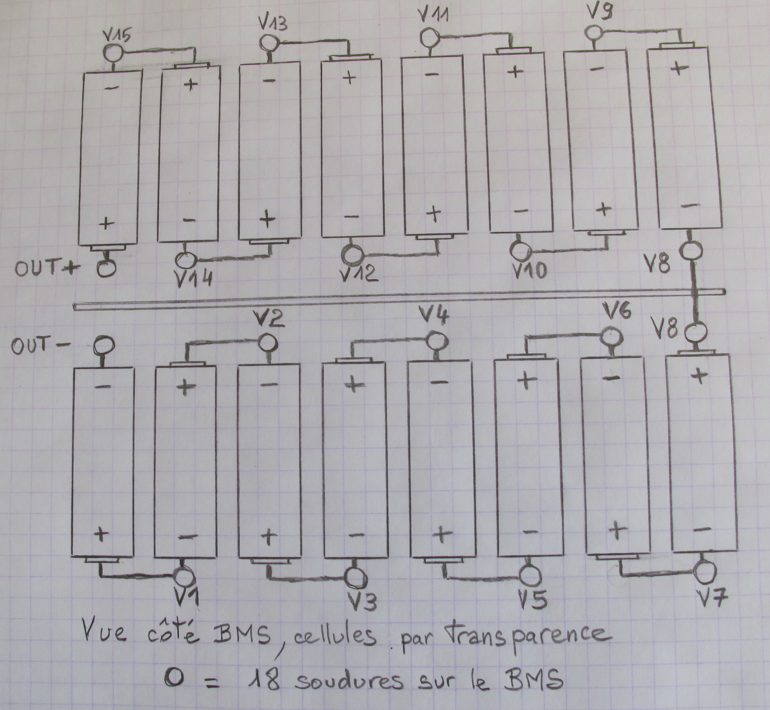 V15 V13 V11 V9
- + - + - + - +
+ - + - + - + -
OUT+ V14 V12 V10 V8
OUT- V2 V4 V6 V8
- + - + - + - +
+ - + - + - + -
V1 V3 V5 V7
Vue côté BMS, cellules par transparence
O = 18 soudures sur le BMS